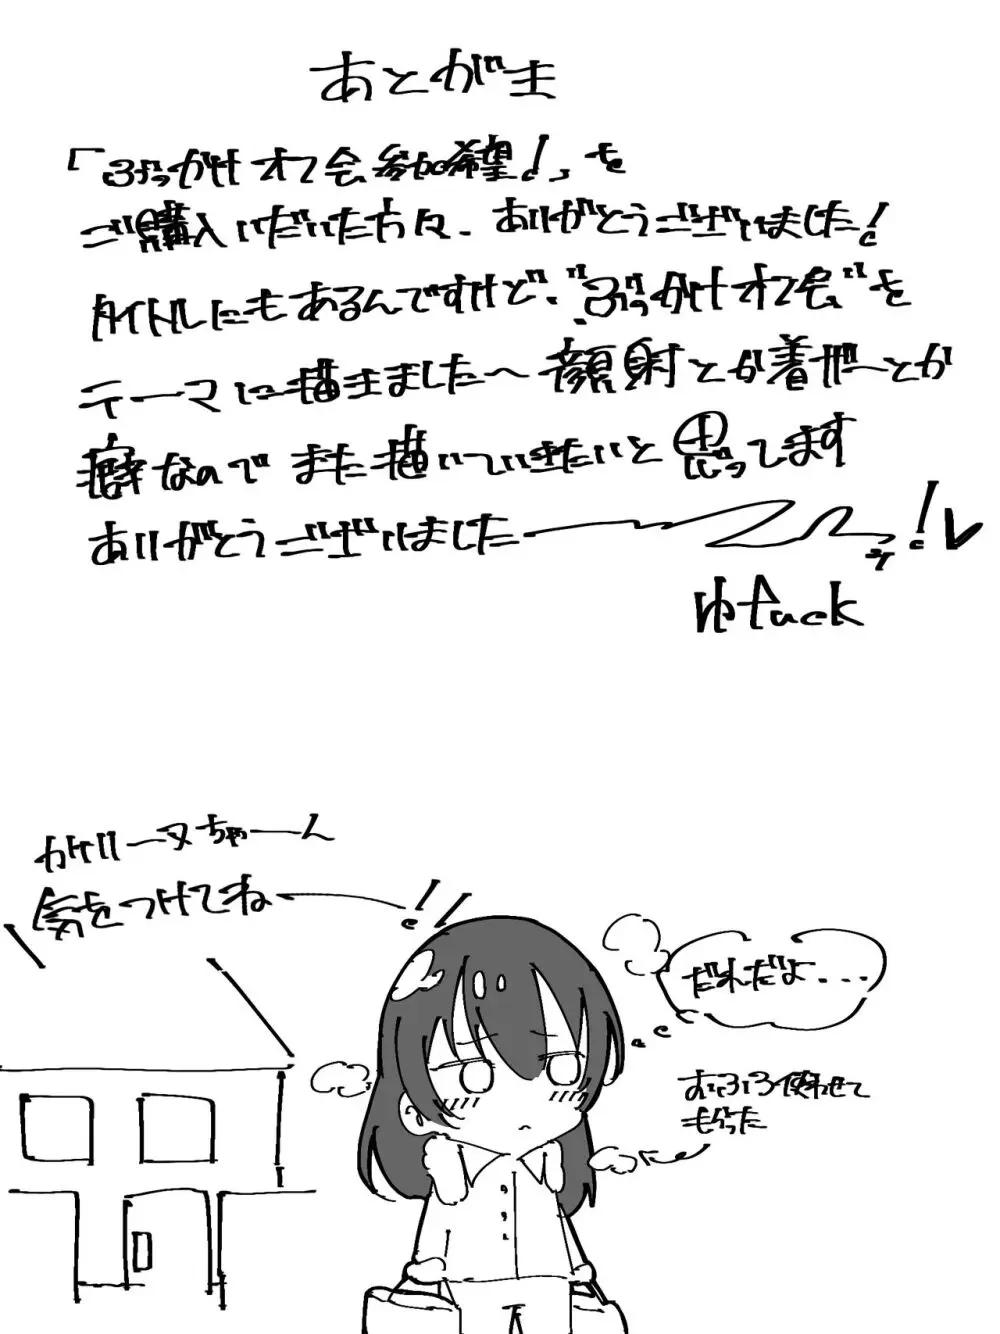 あとがき
「ぶっかけオフ会参加希望！」を
ご購入いただいた方々、ありがとうございました！
タイトルにもあるんですけど、"ぶっかけオフ会"を
テーマに描きました〜顔射とか着ザーとか
癖なのでまた描いていきたいと思ってします
ありがとうございました——！！
ゆtuck
がけりーヌちゃーん
気をつけてねー！！
だれだよ...
おふろ使わせて
もらった